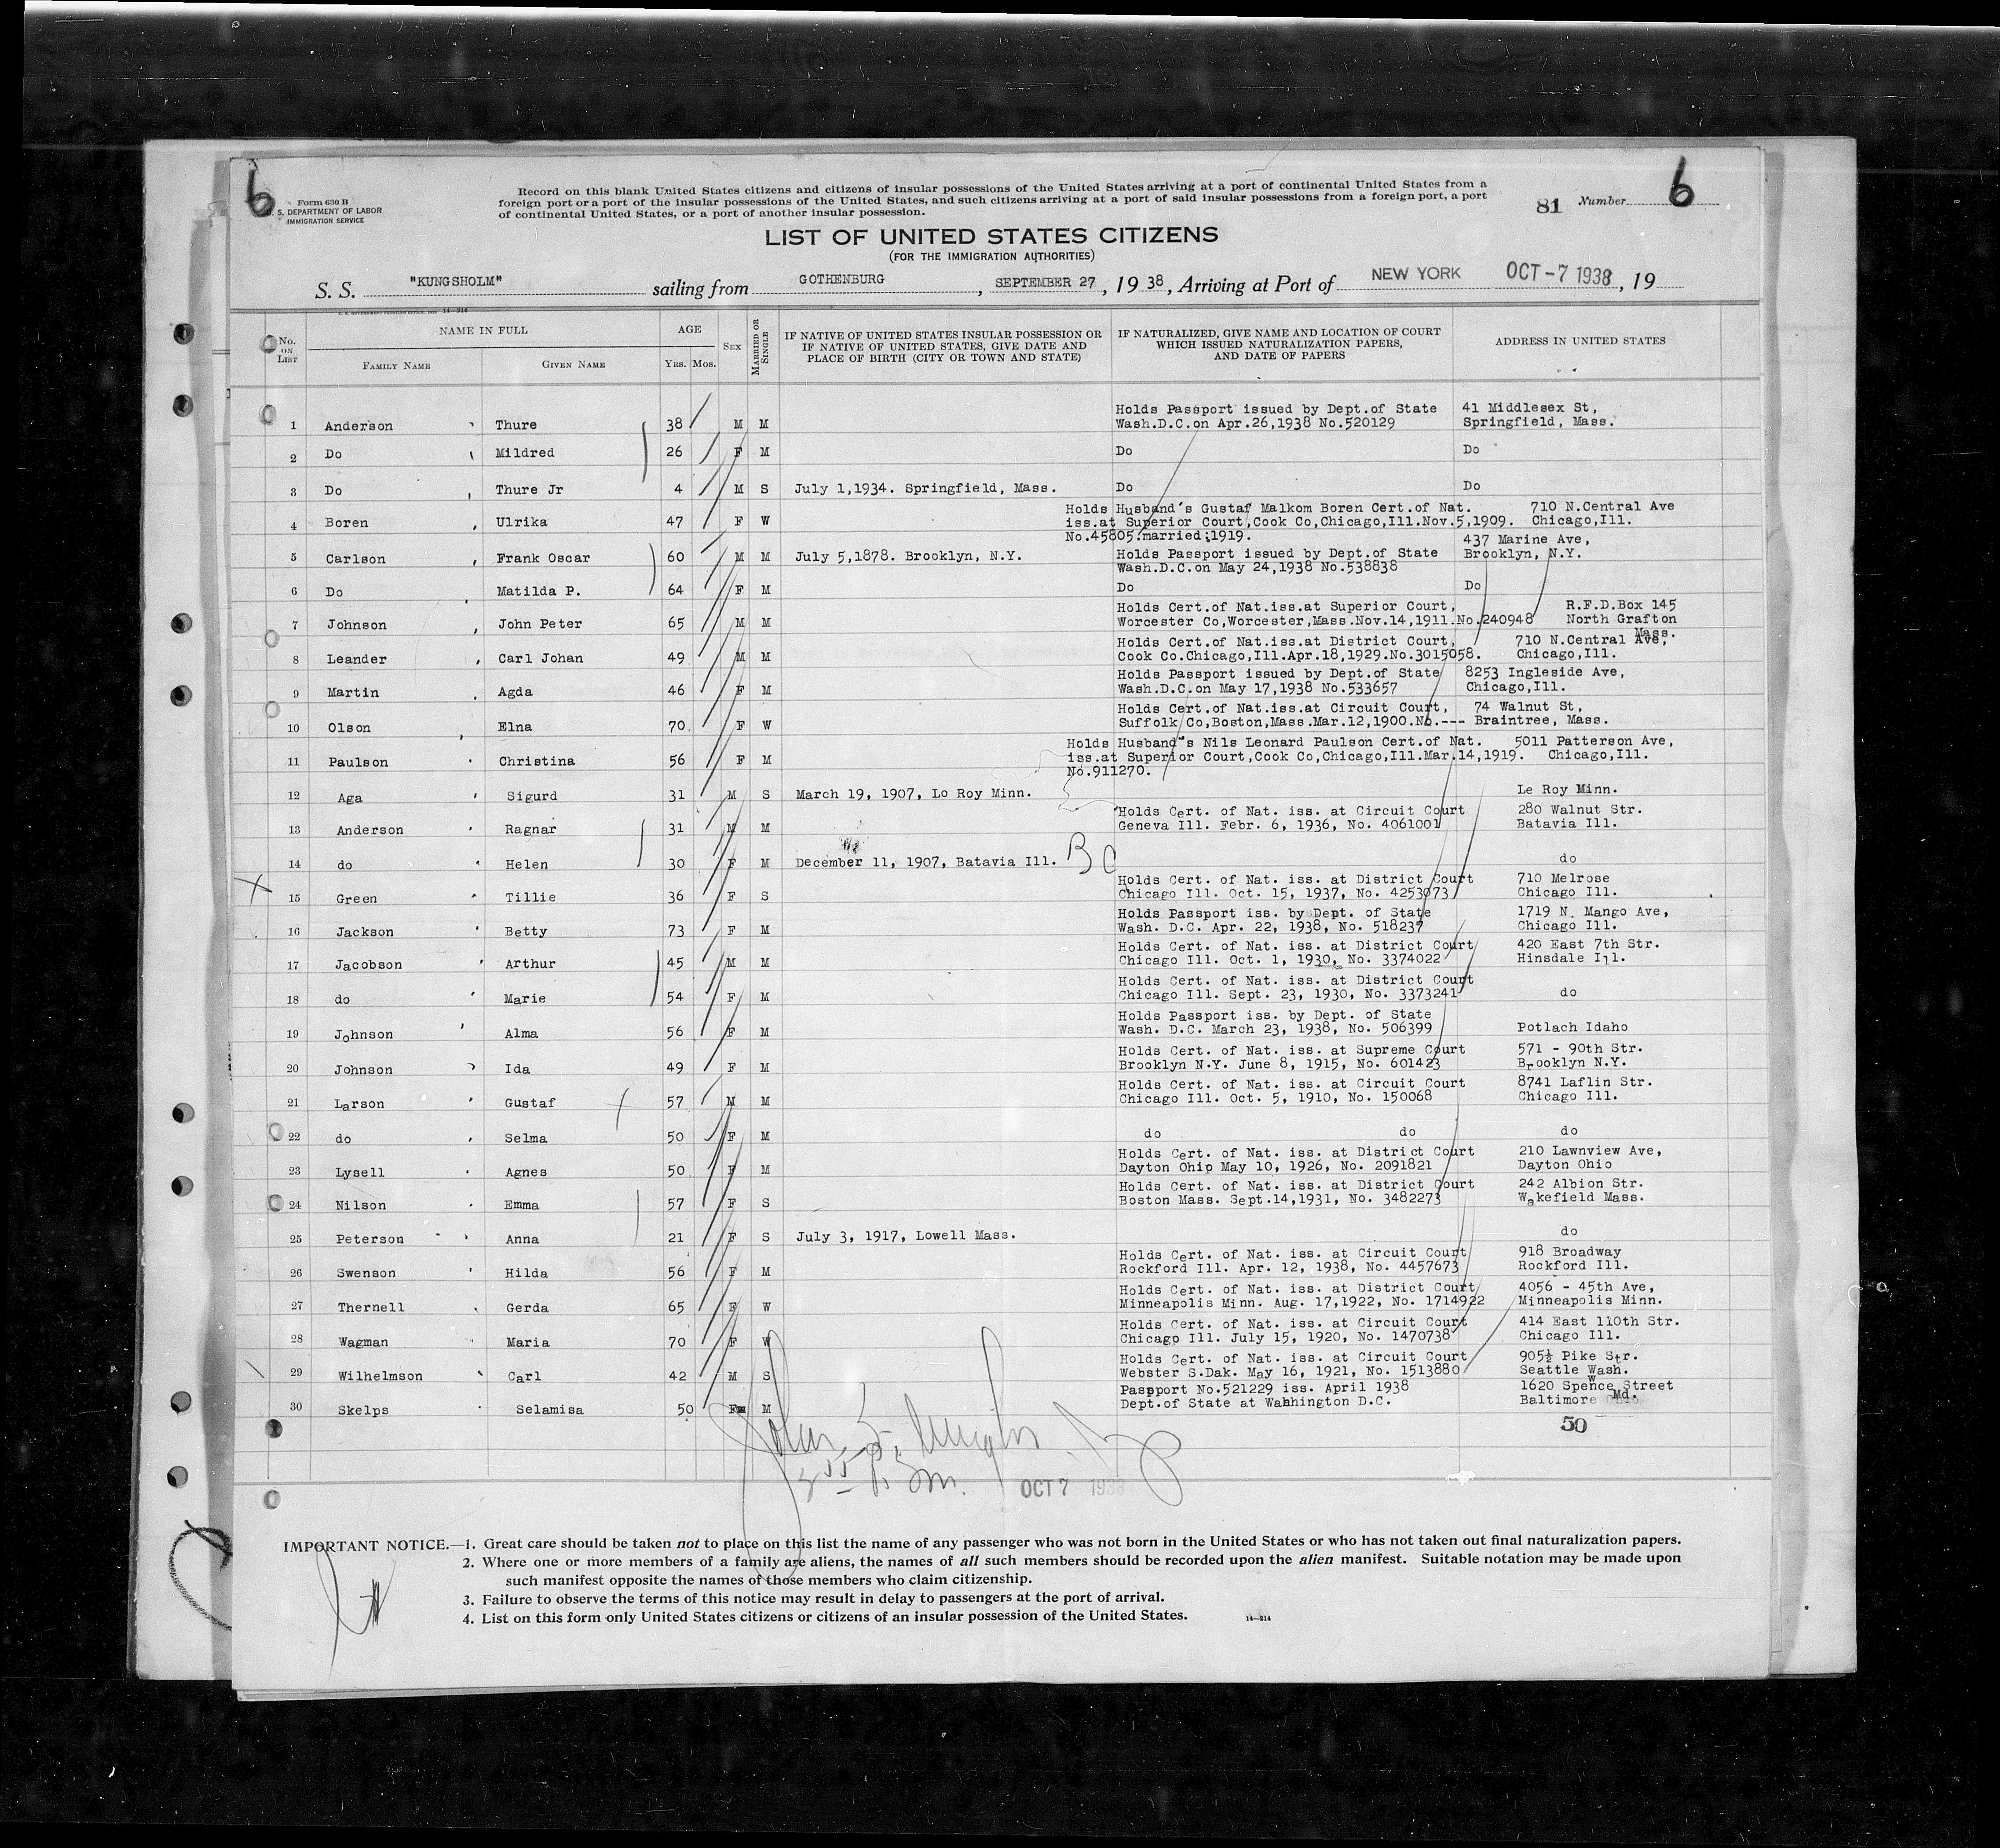 6
Form 630 B
U. S. DEPARTMENT OF LABOR
IMMIGRATION SERVICE
Record on this blank United States citizens and citizens of insular possessions of the United States arriving at a port of continental United States from a
foreign port or a port of the insular possessions of the United States, and such citizens arriving at a port of said insular possessions from a foreign port, a port
of continental United States, or a port of another insular possession.
81 Number 6
LIST OF UNITED STATES CITIZENS
(FOR THE IMMIGRATION AUTHORITIES)
S. S. "KUNGSHOLM" sailing from GOTHENBURG, SEPTEMBER 27, 1938, Arriving at Port of NEW YORK OCT -7 1938, 19
No. ON LIST
NAME IN FULL
FAMILY NAME GIVEN NAME
AGE
YRS. MOS.
SEX
MARRIED OR SINGLE
IF NATIVE OF UNITED STATES INSULAR POSSESSION OR
IF NATIVE OF UNITED STATES, GIVE DATE AND
PLACE OF BIRTH (CITY OR TOWN AND STATE)
IF NATURALIZED, GIVE NAME AND LOCATION OF COURT
WHICH ISSUED NATURALIZATION PAPERS,
AND DATE OF PAPERS
ADDRESS IN UNITED STATES
Holds Passport issued by Dept.of State 41 Middlesex St,
1 Anderson Thure 38 M M Wash.D.C.on Apr.26,1938 No.520129 Springfield, Mass.
2 Do Mildred 26 F M Do Do
3 Do Thure Jr 4 M S July 1,1934. Springfield, Mass. Do Do
Holds Husband's Gustaf Malkom Boren Cert.of Nat. 710 N.Central Ave
4 Boren Ulrika 47 F W iss.at Superior Court,Cook Co,Chicago,Ill.Nov.5,1909. Chicago,Ill.
No.45805.married:1919.
437 Marine Ave,
5 Carlson Frank Oscar 60 M M July 5,1878. Brooklyn, N.Y. Holds Passport issued by Dept.of State Brooklyn, N.Y.
Wash.D.C.on May 24,1938 No.538838
6 Do Matilda P. 64 F M Do Do
Holds Cert.of Nat.iss.at Superior Court, R.F.D.Box 145
7 Johnson John Peter 65 M M Worcester Co,Worcester,Mass.Nov.14,1911.No.240948 North Grafton
Mass.
Holds Cert.of Nat.iss.at District Court, 710 N.Central Ave,
8 Leander Carl Johan 49 M M Cook Co.Chicago,Ill.Apr.18,1929.No.3015058. Chicago,Ill.
Holds Passport issued by Dept.of State 8253 Ingleside Ave,
9 Martin Agda 46 F M Wash.D.C.on May 17,1938 No.533657 Chicago,Ill.
Holds Cert.of Nat.iss.at Circuit Court, 74 Walnut St,
10 Olson Elna 70 F W Suffolk Co,Boston,Mass.Mar.12,1900.No.--- Braintree, Mass.
Holds Husband"s Nils Leonard Paulson Cert.of Nat. 5011 Patterson Ave,
11 Paulson Christina 56 F M iss.at Superior Court,Cook Co,Chicago,Ill.Mar.14,1919. Chicago,Ill.
No.911270.
12 Aga Sigurd 31 M S March 19, 1907, Lo Roy Minn. Le Roy Minn.
Holds Cert. of Nat. iss. at Circuit Court 280 Walnut Str.
13 Anderson Ragnar 31 M M Geneva Ill. Febr. 6, 1936, No. 4061001 Batavia Ill.
14 do Helen 30 F M December 11, 1907, Batavia Ill. BC do
Holds Cert. of Nat. iss. at District Court 710 Melrose
X 15 Green Tillie 36 F S Chicago Ill. Oct. 15, 1937, No. 4253073 Chicago Ill.
Holds Passport iss. by Dept. of State 1719 N. Mango Ave,
16 Jackson Betty 73 F M Wash. D.C. Apr. 22, 1938, No. 518237 Chicago Ill.
Holds Cert. of Nat. iss. at District Court 420 East 7th Str.
17 Jacobson Arthur 45 M M Chicago Ill. Oct. 1, 1930, No. 3374022 Hinsdale Ill.
Holds Cert. of Nat. iss. at District Court
18 do Marie 54 F M Chicago Ill. Sept. 23, 1930, No. 3373241 do
Holds Passport iss. by Dept. of State
19 Johnson Alma 56 F M Wash. D.C. March 23, 1938, No. 506399 Potlach Idaho
Holds Cert. of Nat. iss. at Supreme Court 571 - 90th Str.
20 Johnson Ida 49 F M Brooklyn N.Y. June 8, 1915, No. 601423 Brooklyn N.Y.
Holds Cert. of Nat. iss. at Circuit Court 8741 Laflin Str.
21 Larson Gustaf 57 M M Chicago Ill. Oct. 5, 1910, No. 150068 Chicago Ill.
22 do Selma 50 F M do do do
Holds Cert. of Nat. iss. at District Court 210 Lawnview Ave,
23 Lysell Agnes 50 F M Dayton Ohio May 10, 1926, No. 2091821 Dayton Ohio
Holds Cert. of Nat. iss. at District Court 242 Albion Str.
24 Nilson Emma 57 F S Boston Mass. Sept.14,1931, No. 3482273 Wakefield Mass.
25 Peterson Anna 21 F S July 3, 1917, Lowell Mass. do
Holds Cert. of Nat. iss. at Circuit Court 918 Broadway
26 Swenson Hilda 56 F M Rockford Ill. Apr. 12, 1938, No. 4457673 Rockford Ill.
Holds Cert. of Nat. iss. at District Court 4056 - 45th Ave,
27 Thernell Gerda 65 F W Minneapolis Minn. Aug. 17,1922, No. 1714922 Minneapolis Minn.
Holds Cert. of Nat. iss. at Circuit Court 414 East 110th Str.
28 Wagman Maria 70 F W Chicago Ill. July 15, 1920, No. 1470738 Chicago Ill.
Holds Cert. of Nat. iss. at Circuit Court 905½ Pike Str.
29 Wilhelmson Carl 42 M S Webster S.Dak. May 16, 1921, No. 1513880 Seattle Wash.
Passport No.521229 iss. April 1938 1620 Spence Street
30 Skelps Selamisa 50 F M Dept.of State at Wahhington D.C. Baltimore Md.
50
OCT 7 1938
IMPORTANT NOTICE.—1. Great care should be taken not to place on this list the name of any passenger who was not born in the United States or who has not taken out final naturalization papers.
2. Where one or more members of a family are aliens, the names of all such members should be recorded upon the alien manifest. Suitable notation may be made upon
such manifest opposite the names of those members who claim citizenship.
3. Failure to observe the terms of this notice may result in delay to passengers at the port of arrival.
4. List on this form only United States citizens or citizens of an insular possession of the United States.
14—214